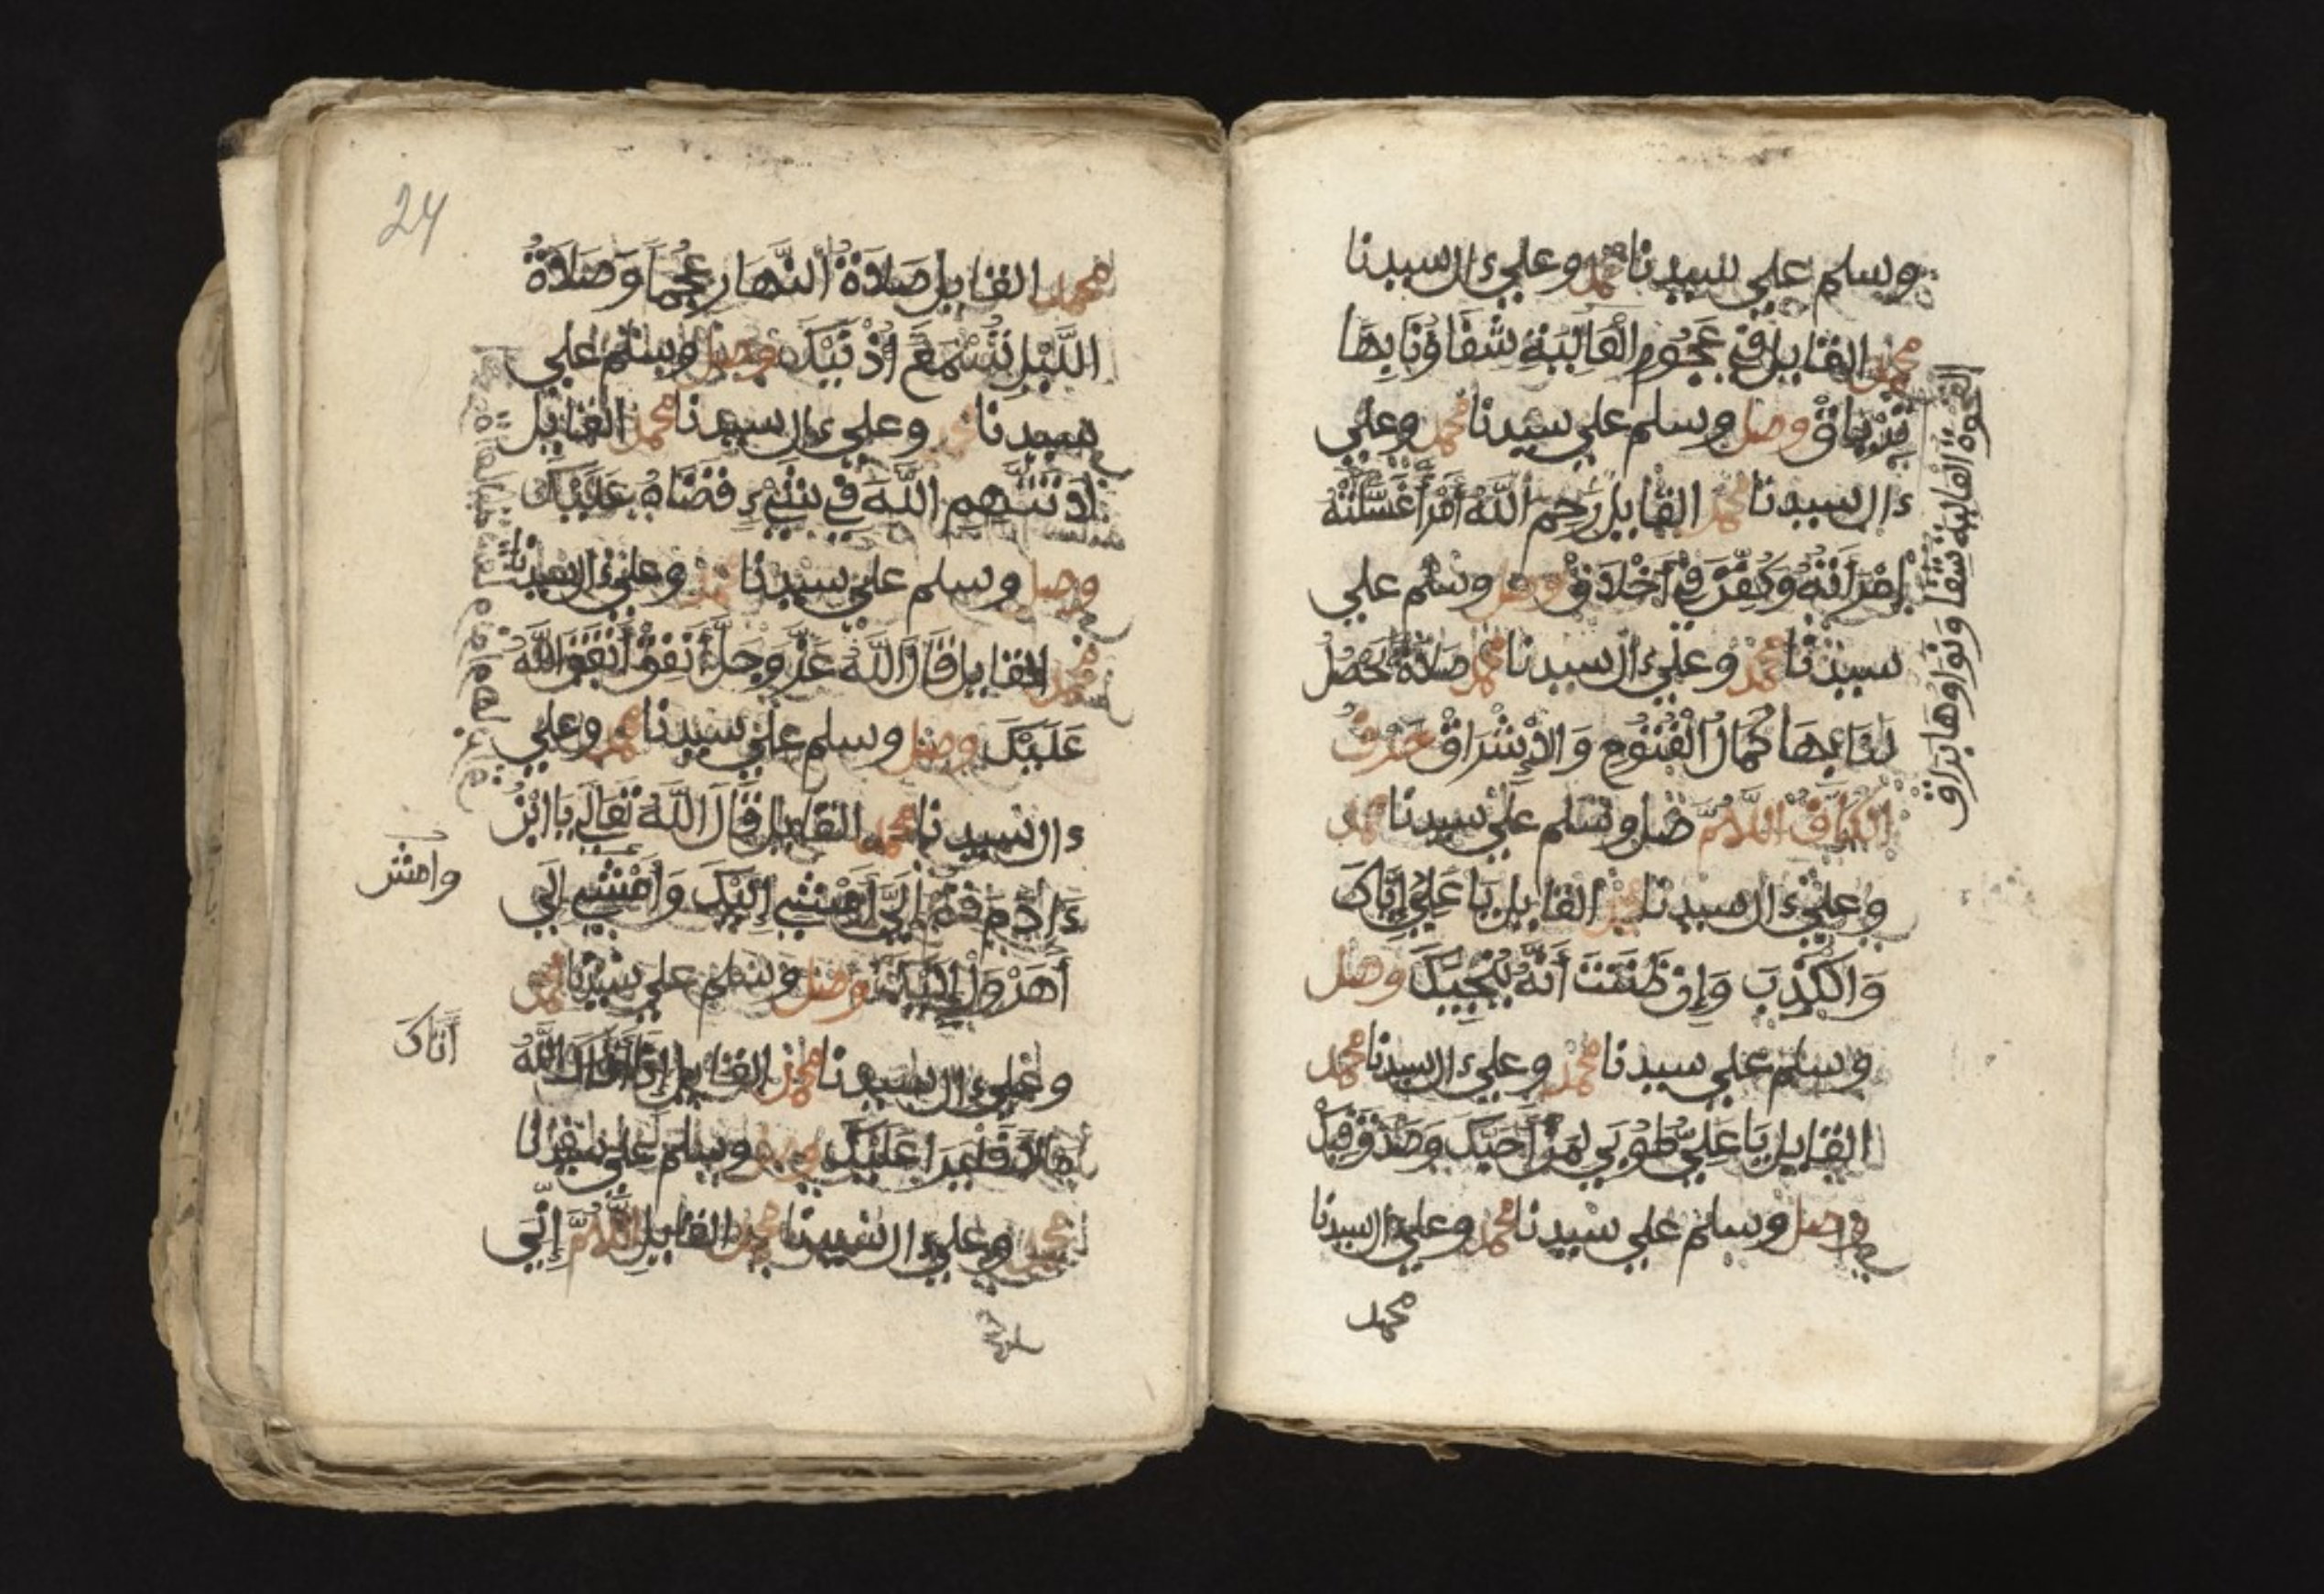 وسلم علي سيدنا محمد وعلي ءال سيدنا
محمد القايل في عجوم العالية شفاؤنا بها
ترياق وصل وسلم علي سيدنا محمد وعلي
ءال سيدنا محمد القايل رحم الله امرأ غسلته
امرأته وكفن في أخلاق وصل وسلم علي
سيدنا محمد وعلي ءال سيدنا محمد صلاة تحصل
لنا بها كمال الفتوح والاشراق حرف
الكاف اللهم صل وسلم علي سيدنا محمد
وعلي ءال سيدنا محمد القايل يا علي إياك
والكذب وإن ظننت أنه ينجيك وصل
وسلم علي سيدنا محمد وعلي ءال سيدنا محمد
القايل يا علي طوبي لمن أحبك وصدق فيك
وصل وسلم علي سيدنا محمد وعلي ءال سيدنا
محمد
24
محمد القايل صلاة النهار عجما وصلاة
الليل تسمع أذنيك وصل وسلم علي
سيدنا محمد وعلي ءال سيدنا محمد القايل
لا تتهم الله في شيء قضاه عليك
وصل وسلم علي سيدنا محمد وعلي ءال سيدنا
محمد القايل قال الله عز وجل أنفق أنفق
عليك وصل وسلم علي سيدنا محمد وعلي
ءال سيدنا محمد القايل قال الله تعالي يا ابن
ءادم قم إلي أمش إليك وامش إلي
أهرول إليك وصل وسلم علي سيدنا محمد
وعلي ءال سيدنا محمد القايل إذا ءاتاك الله
مالا فلير عليك وصل وسلم علي سيدنا
محمد وعلي ءال سيدنا محمد القايل اللهم إني
وامش
أتاك